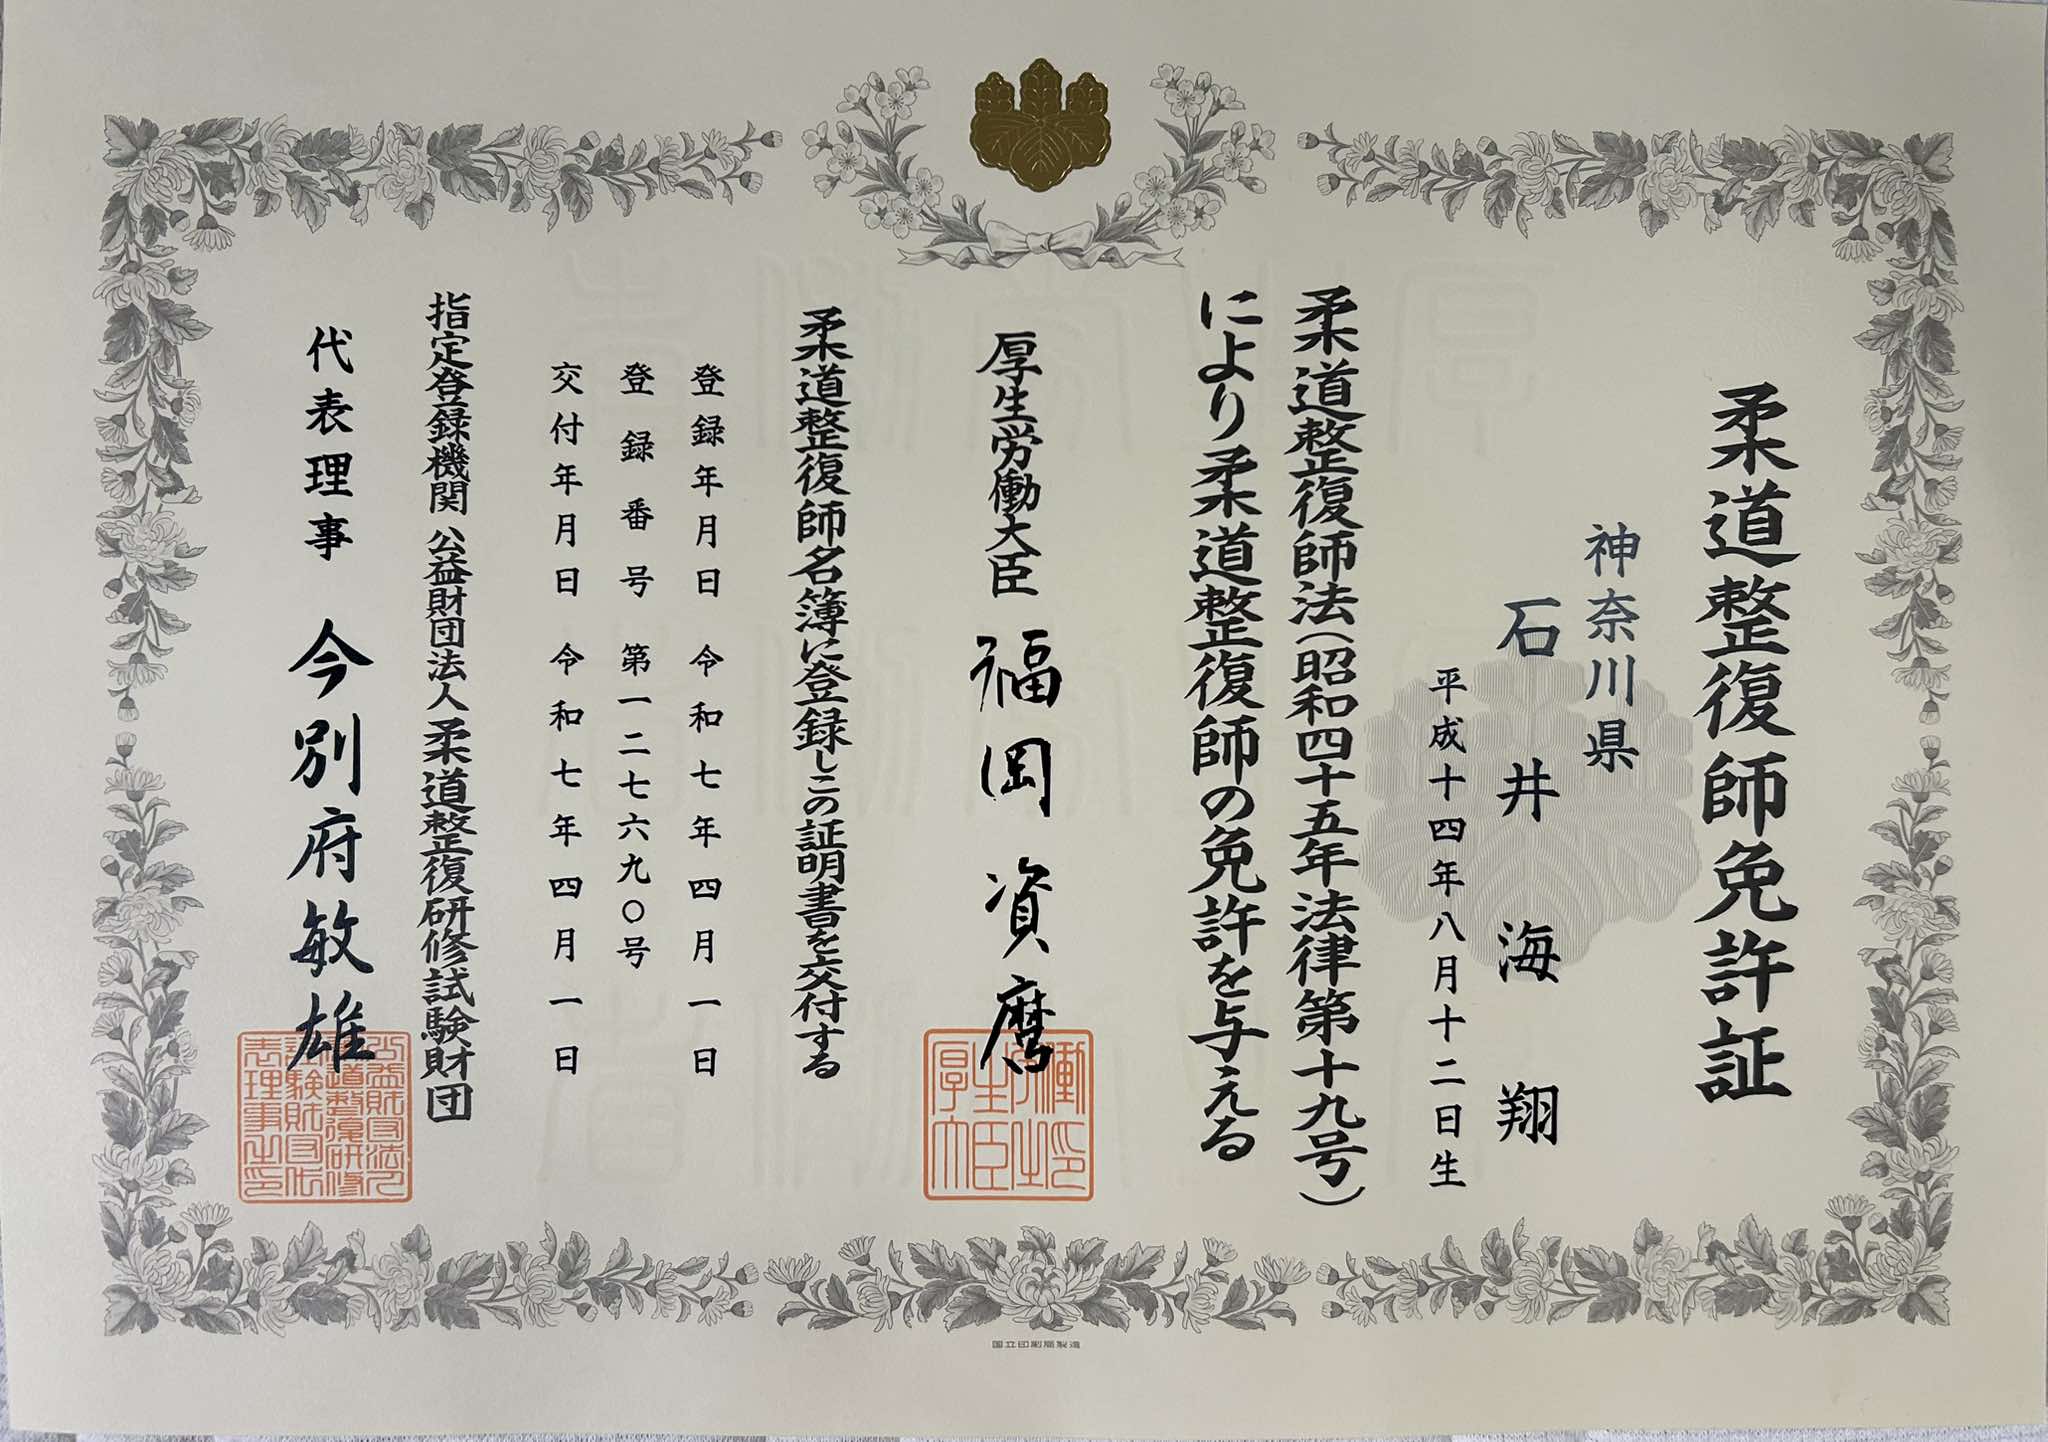 柔道整復師免許証
神奈川県
石井海翔
平成十四年八月十二日生
柔道整復師法(昭和四十五年法律第十九号)
により柔道整復師の免許を与える
厚生労働大臣 福岡資麿
厚生労働大臣之印
柔道整復師名簿に登録しこの証明書を交付する
登録年月日 令和七年四月一日
登録番号 第一二七六九〇号
交付年月日 令和七年四月一日
指定登録機関 公益財団法人 柔道整復研修試験財団
代表理事 今別府敏雄
国立印刷局製造